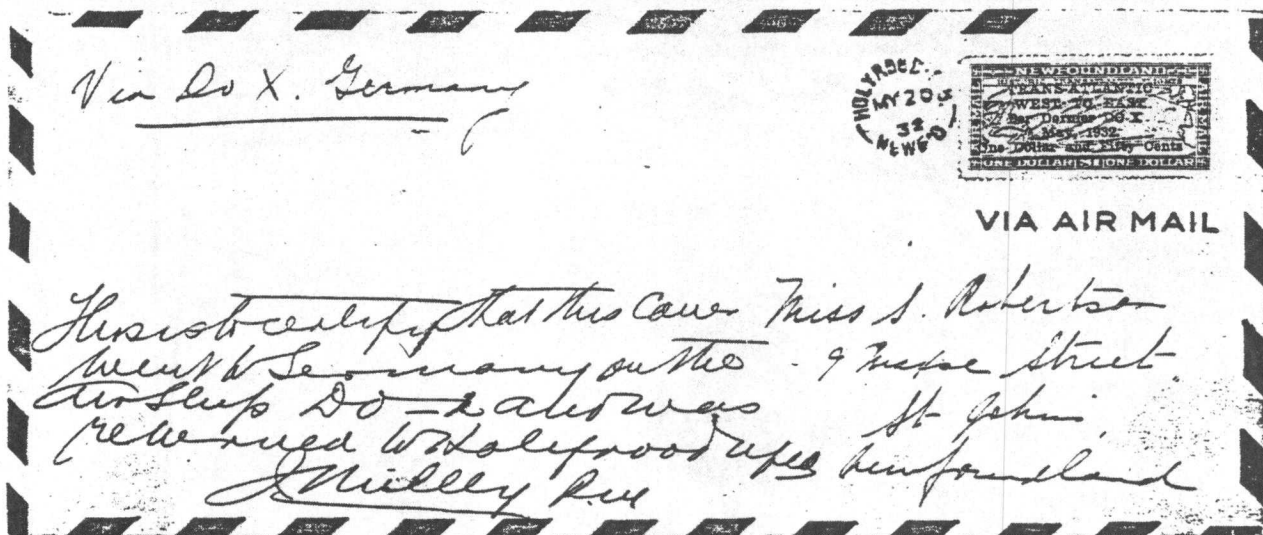 Via Do X. Germany
HOLYROOD
MY 20
32
NEWFD
NEWFOUNDLAND
TRANS-ATLANTIC
WEST TO EAST
Per Dornier DO-X
May, 1932.
One Dollar and Fifty Cents
ONE DOLLAR $1 ONE DOLLAR
VIA AIR MAIL
This is to certify that this Cover
went to Germany on the
Air Ship Do - and was
returned to Holyrood
Miss S. Robertson
9 Street
St John
Newfoundland